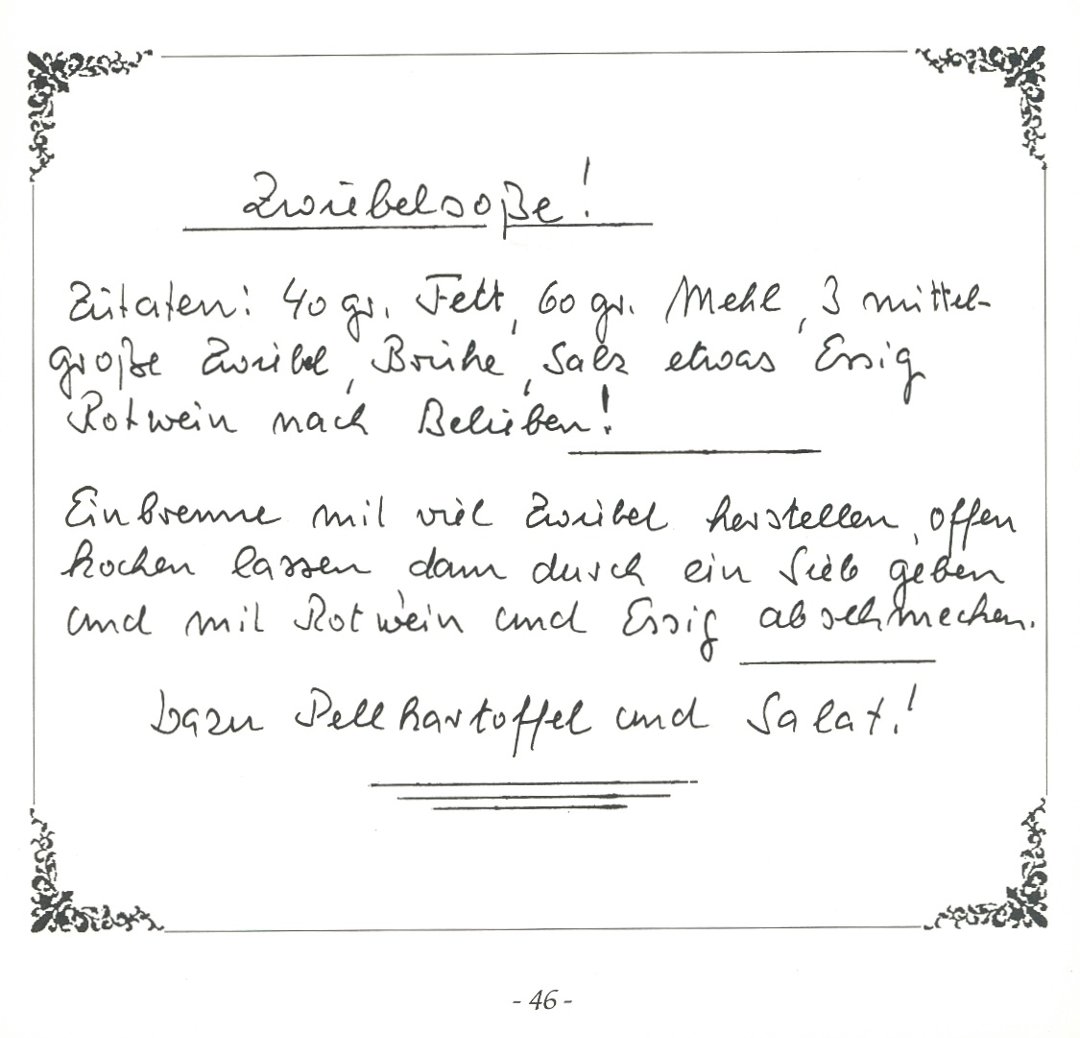 Zwiebelsoße!
Zutaten: 40 gr. Fett, 60 gr. Mehl, 3 mittel-
große Zwiebel, Brühe, Salz etwas Essig
Rotwein nach Belieben!
Einbrenne mit viel Zwiebel herstellen, offen
kochen lassen dann durch ein Sieb geben
und mit Rotwein und Essig abschmecken.
Dazu Pellkartoffel und Salat!
- 46 -